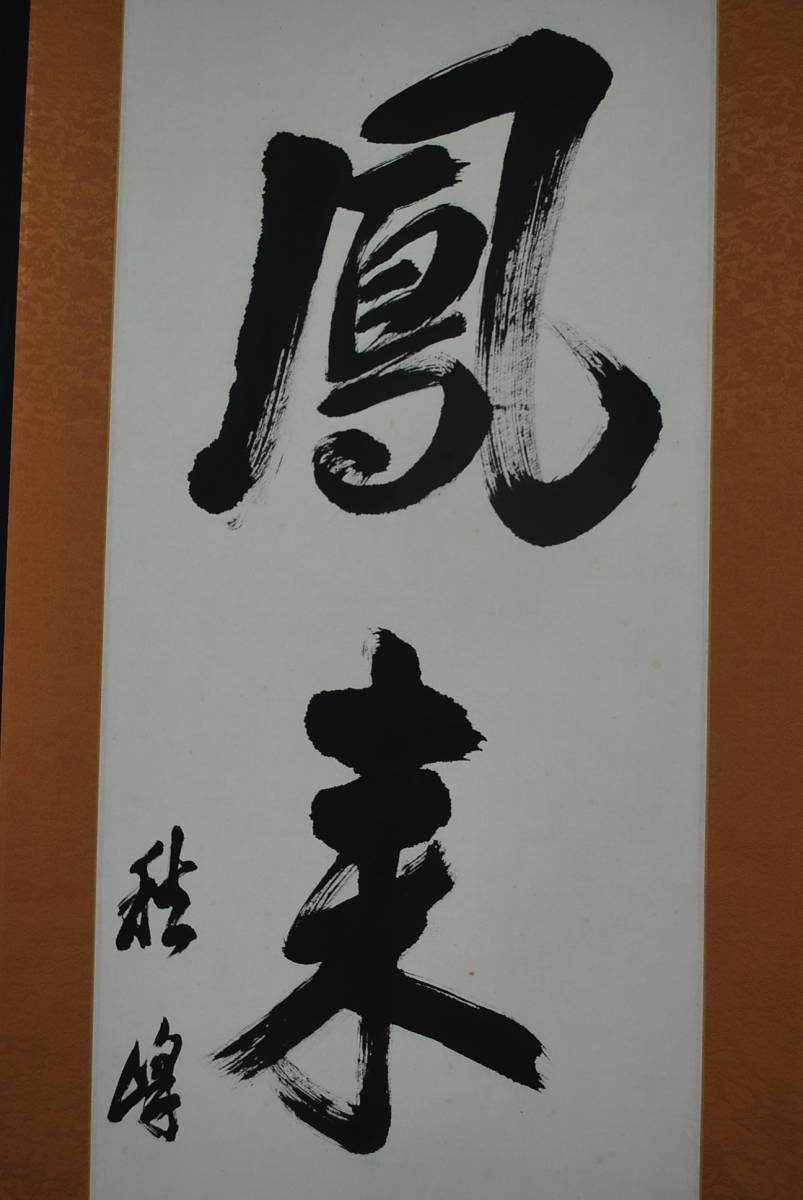 鳳来
秋峰